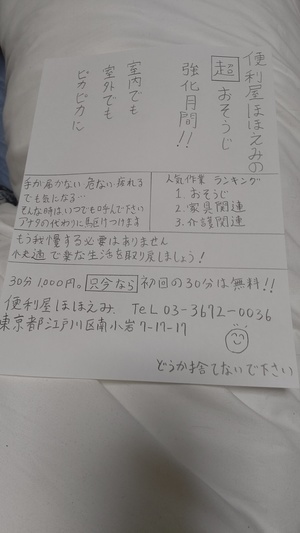 便利屋ほほえみの
超 おそうじ
強化月間!!
室内でも
室外でも
ピカピカに
手が届かない 危ない 疲れる
でも気になる…
そんな時はいつでも呼んで下さい
アナタの代わりに馬区けつけます
人気作業 ランキング
1. おそうじ
2. 家具関連
3. 介護関連
もう我慢する必要はありません
快適で楽な生活を取り戻しましょう!
30分 1,000円。只今なら 初回の30分は無料!!
便利屋ほほえみ. TeL 03-3672-0036
東京都江戸川区南小岩7-17-17
どうか捨てないで下さい